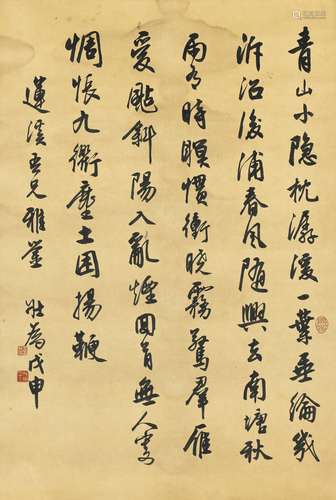 青山小隐枕潺湲一葉垂綸幾
泝沿後浦春風随興去南塘秋
雨有時瞑慣衝曉霧驚羣雁
愛颭斜陽入亂煙回首無人寄
惆悵九衢塵土困揚鞭
蓮溪吾兄雅鑒
壯為戊申